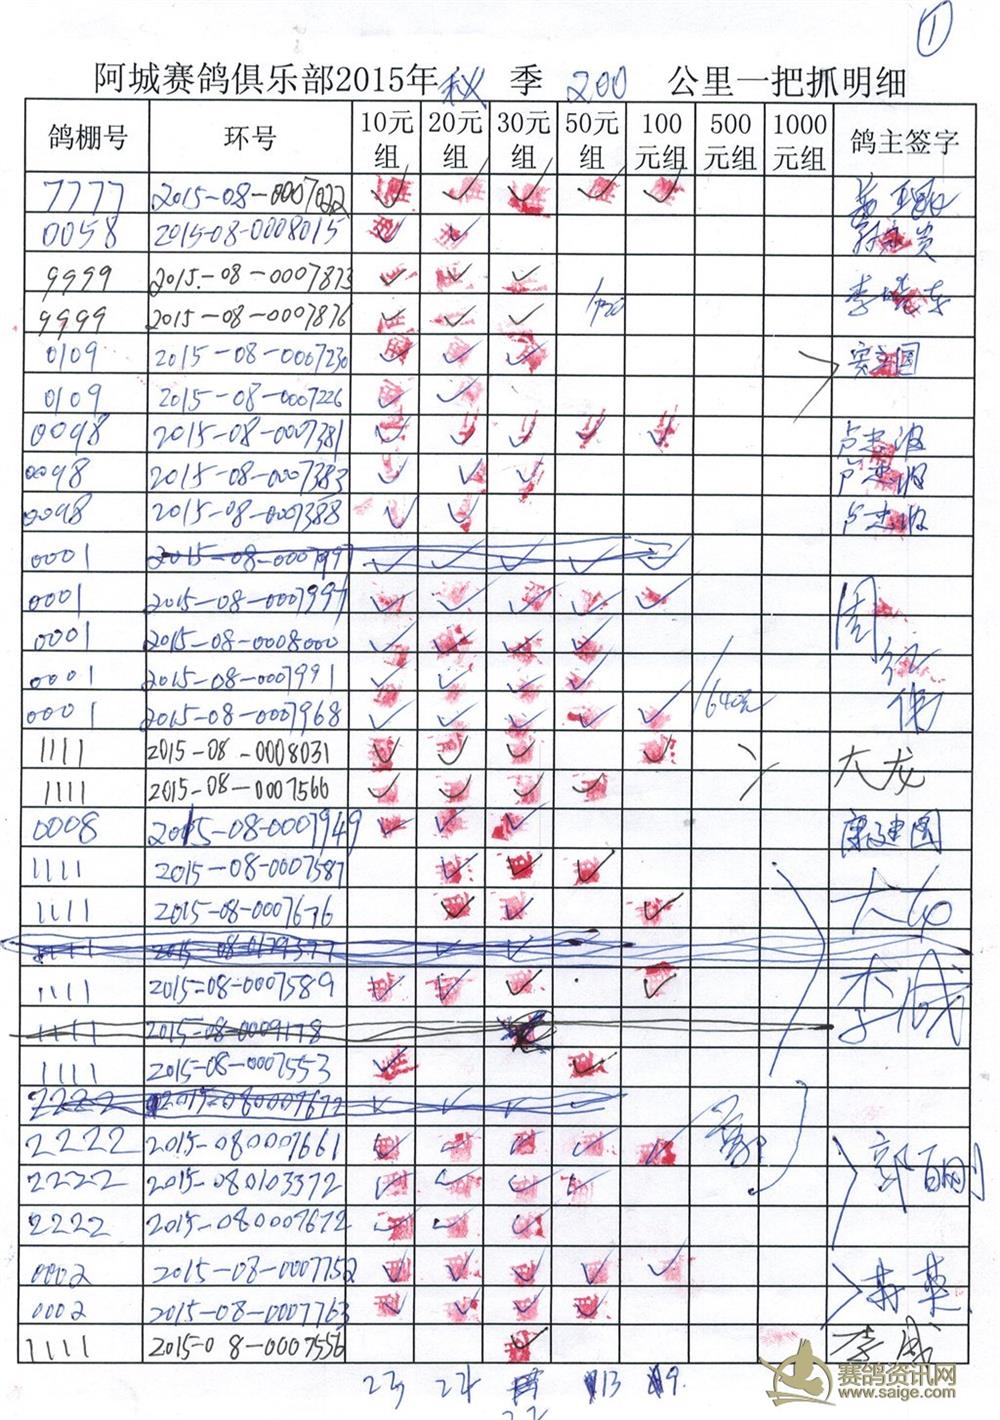 ①
阿城赛鸽俱乐部2015年 秋 季 200 公里一把抓明细
鸽棚号 环号 10元组 20元组 30元组 50元组 100元组 500元组 1000元组 鸽主签字
7777 2015-08-0007022 ✓ ✓ ✓ ✓ ✓
0058 2015-08-0008015 ✓ ✓
9999 2015-08-0007873 ✓ ✓ ✓ 李晓东
9999 2015-08-0007876 ✓ ✓ ✓
0109 2015-08-0007230 ✓ ✓ ✓
0109 2015-08-0007226 ✓ ✓
0098 2015-08-0007381 ✓ ✓ ✓ ✓ ✓ 卢忠波
0098 2015-08-0007383 ✓ ✓ ✓ 卢忠波
0098 2015-08-0007388 ✓ ✓ 卢忠波
0001 2015-08-0007997 ✓ ✓ ✓ ✓ ✓
0001 2015-08-0007997 ✓ ✓ ✓ ✓ ✓
0001 2015-08-0008000 ✓ ✓ ✓ ✓
0001 2015-08-0007991 ✓ ✓ ✓ ✓
0001 2015-08-0007968 ✓ ✓ ✓ ✓ ✓ 640元
1111 2015-08-0008031 ✓ ✓ ✓ ✓ 大龙
1111 2015-08-0007566 ✓ ✓ ✓ ✓
0008 2015-08-0007949 ✓ ✓ ✓ 康建国
1111 2015-08-0007587 ✓ ✓ ✓ 大龙
1111 2015-08-0007676 ✓ ✓ ✓
1111 2015-08-0179377 ✓ ✓
1111 2015-08-0007589 ✓ ✓ ✓ ✓ 李成
1111 2015-08-0009178
1111 2015-08-0007553 ✓ ✓
2222 2015-080007672 ✓ ✓ ✓ ✓
2222 2015-080007661 ✓ ✓ ✓ ✓ ✓
2222 2015-080103372 ✓ ✓ ✓ ✓ 郭百刚
2222 2015-080007672 ✓ ✓ ✓
0002 2015-08-0007752 ✓ ✓ ✓ ✓ ✓
0002 2015-08-0007763 ✓ ✓ ✓ ✓
1111 2015-08-0007556 ✓ 李成
23 24 22 13 9.
赛鸽资讯网
www.saige.com